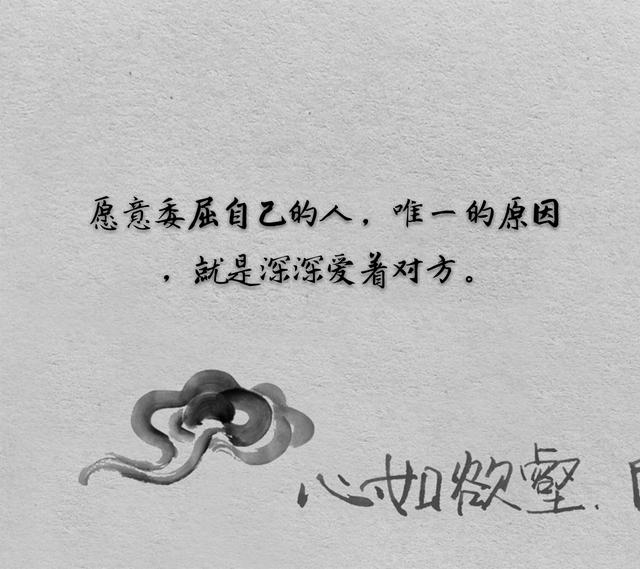 愿意委屈自己的人，唯一的原因
，就是深深爱着对方。
心如欲壑.